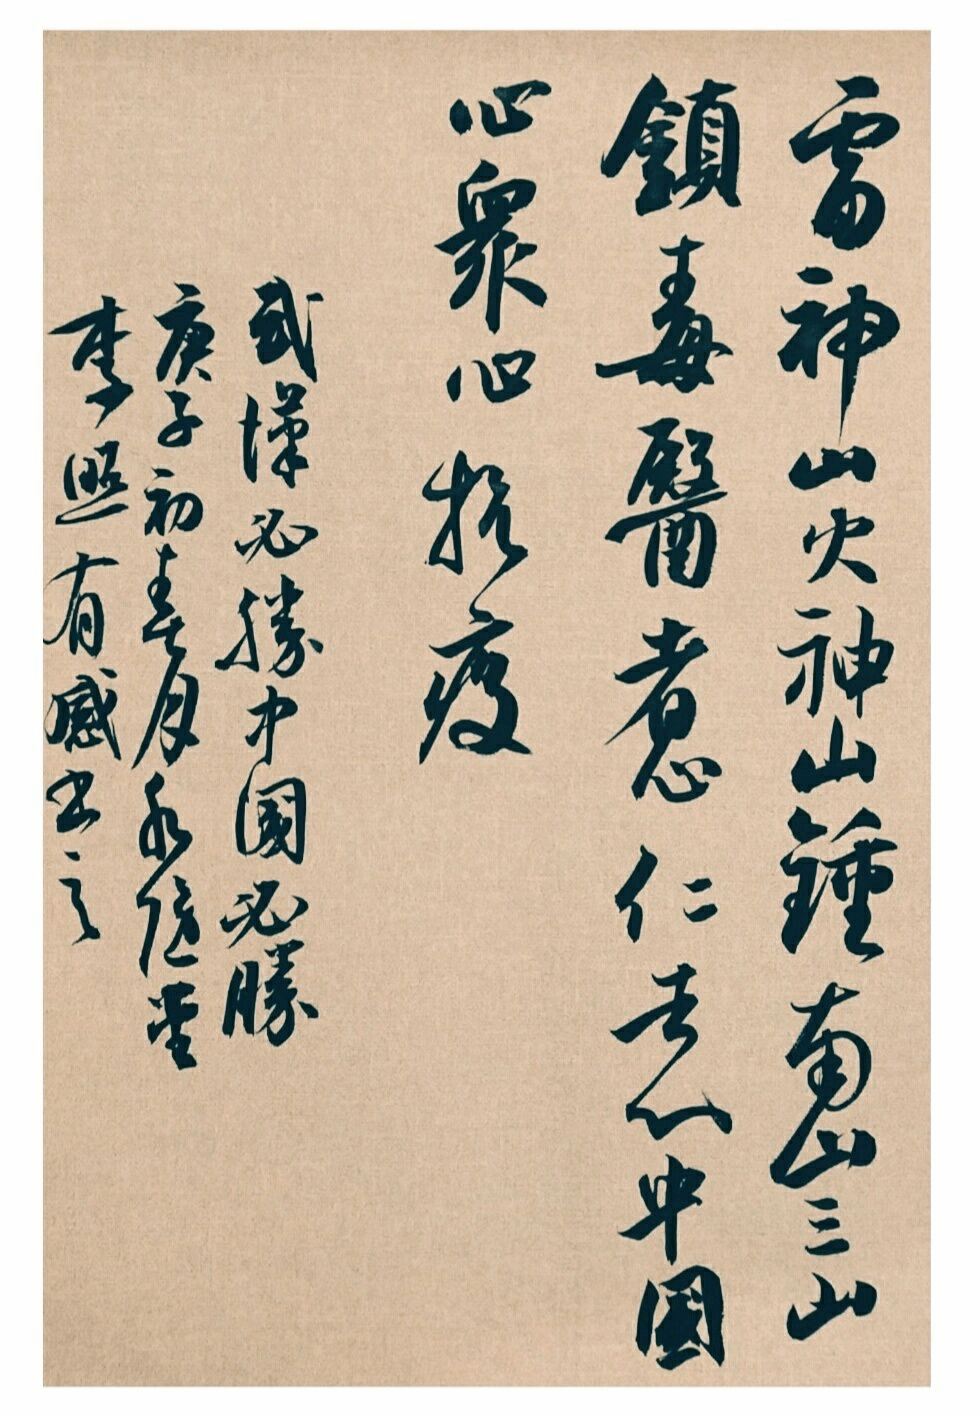 雷神山火神山鍾南山三山
鎮毒醫者心仁者心中國
心眾心抗疫
武漢必勝中國必勝
庚子初春月永堂
李照有感書之